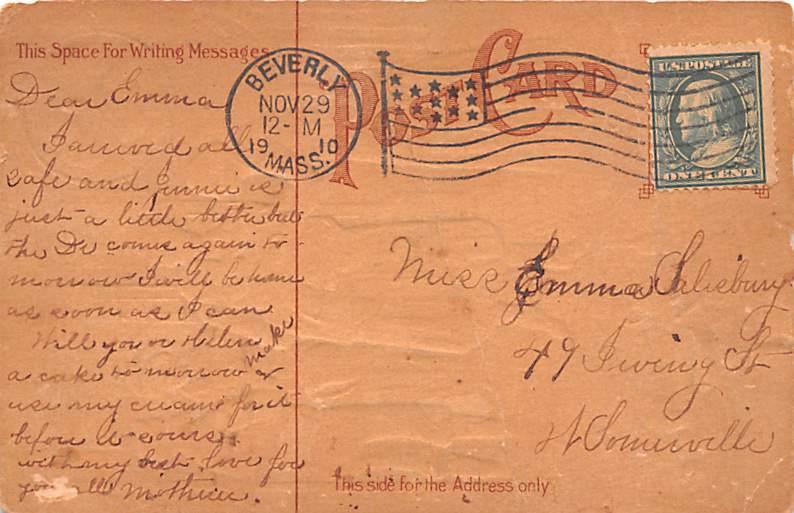 This Space For Writing Messages
POST CARD
BEVERLY
NOV 29
12- M
19 10
MASS.
U.S. POSTAGE
ONE CENT
Dear Emma
I arrived all
safe and Jennie is
just a little better but
the Dr comes again to
morrow I will be home
as soon as I can
Will you or Helen make
a cake to-morrow &
use my cream for it
before it sours
with my best love for
you all Mother.
Miss Emma Salisbury
49 Irving St
W Somerville
This side for the Address only